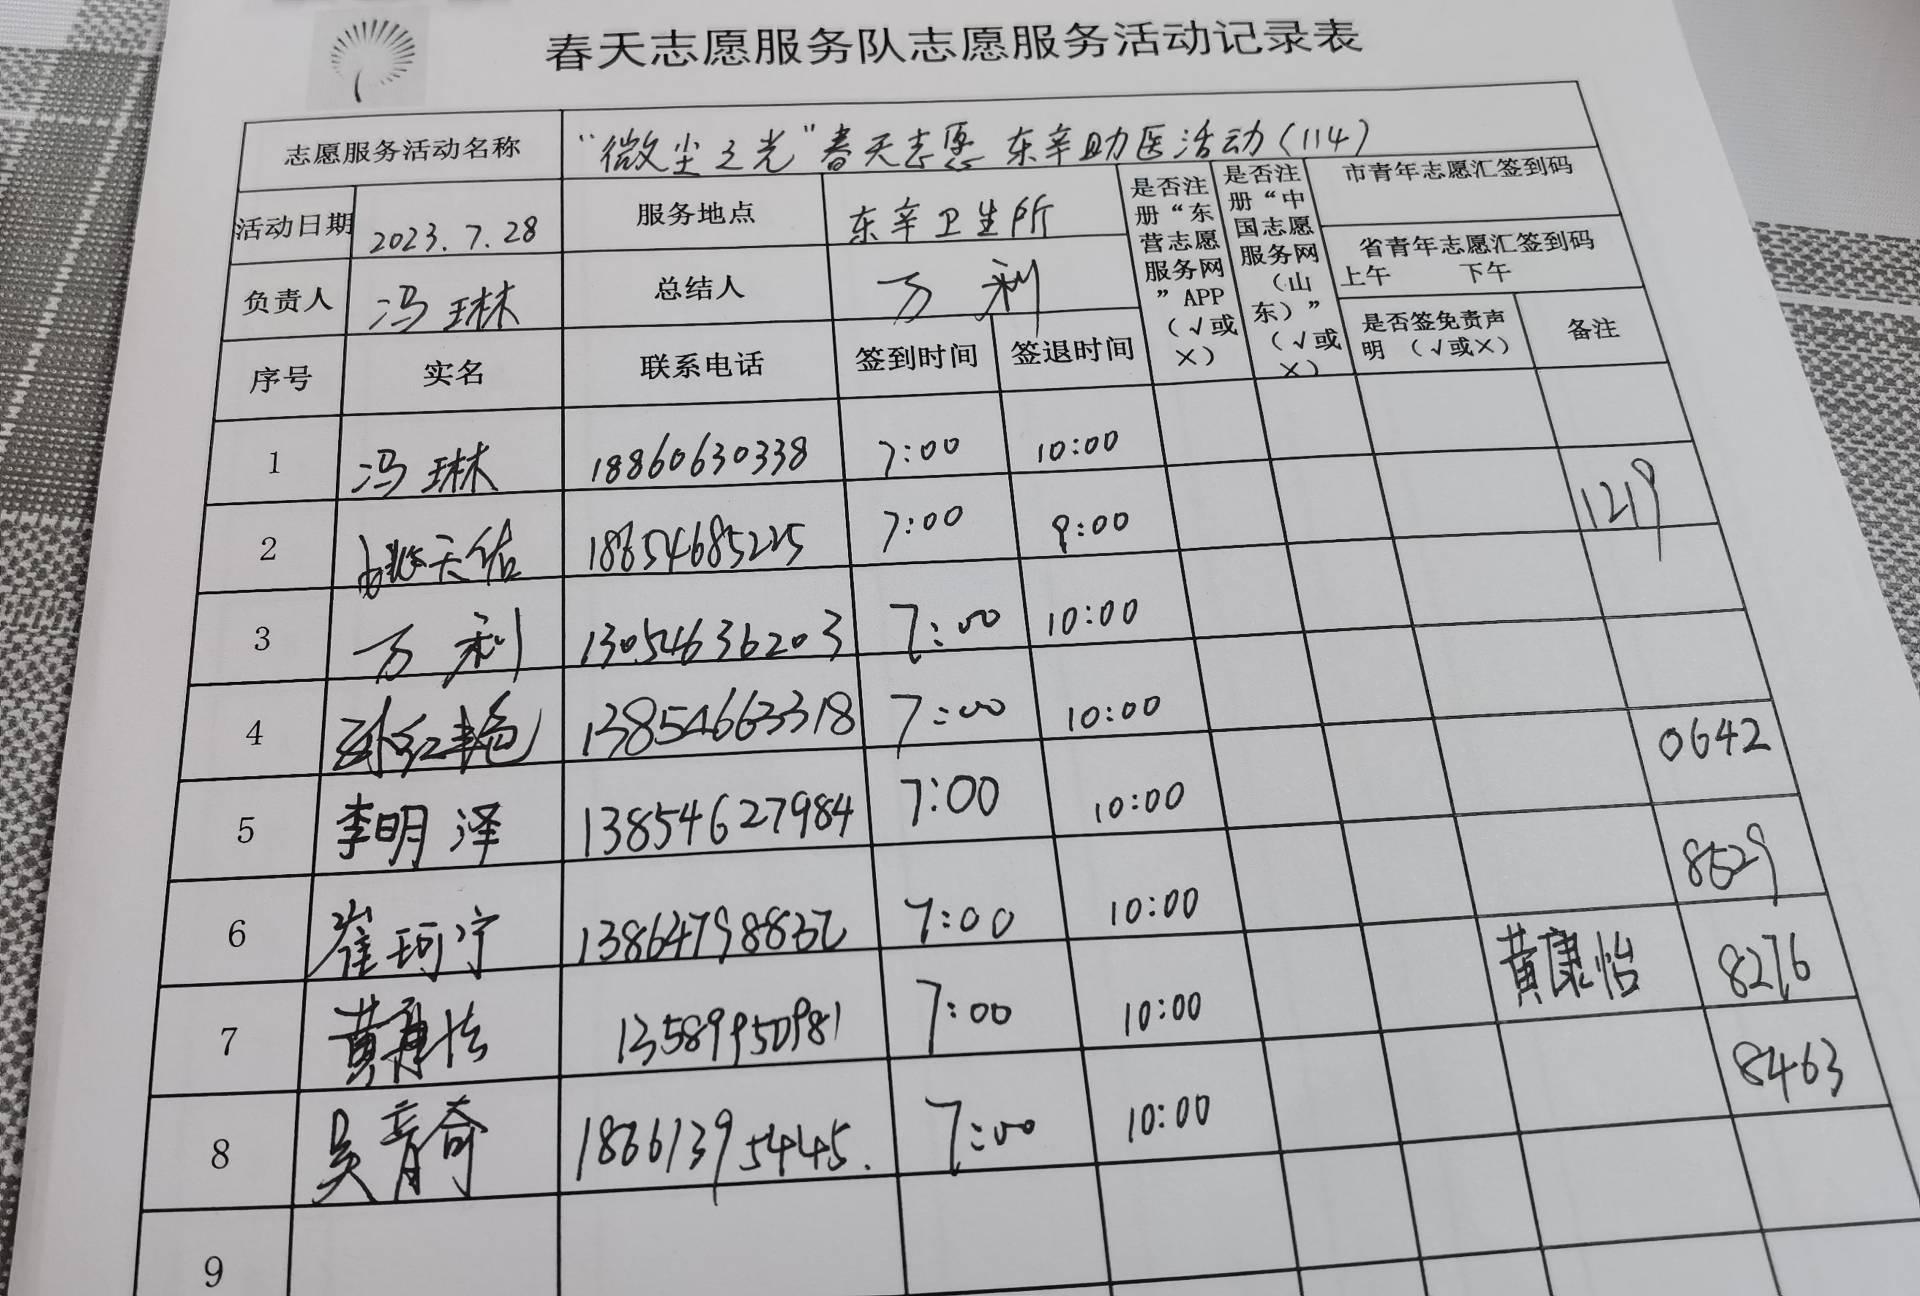 春天志愿服务队志愿服务活动记录表
志愿服务活动名称 “微尘之光”春天志愿 东辛助医活动(114)
活动日期 2023.7.28 服务地点 东辛卫生所 是否注册“东营志愿服务网”APP(√或×) 是否注册“中国志愿服务网(山东)”(√或×) 市青年志愿汇签到码
省青年志愿汇签到码
上午 下午
负责人 冯琳 总结人 万利
序号 实名 联系电话 签到时间 签退时间 是否签免责声明 (√或×) 备注
1 冯琳 18860630338 7:00 10:00
2 姚天佑 18654685225 7:00 9:00 1219
3 万利 13054636203 7:00 10:00
4 孙红艳 13854663318 7:00 10:00
5 李明泽 13854627984 7:00 10:00 0642
6 崔珂宁 13864798832 7:00 10:00 8529
7 黄康怡 13589950981 7:00 10:00 黄康怡 8276
8 吴育奇 18661395445. 7:00 10:00 8463
9